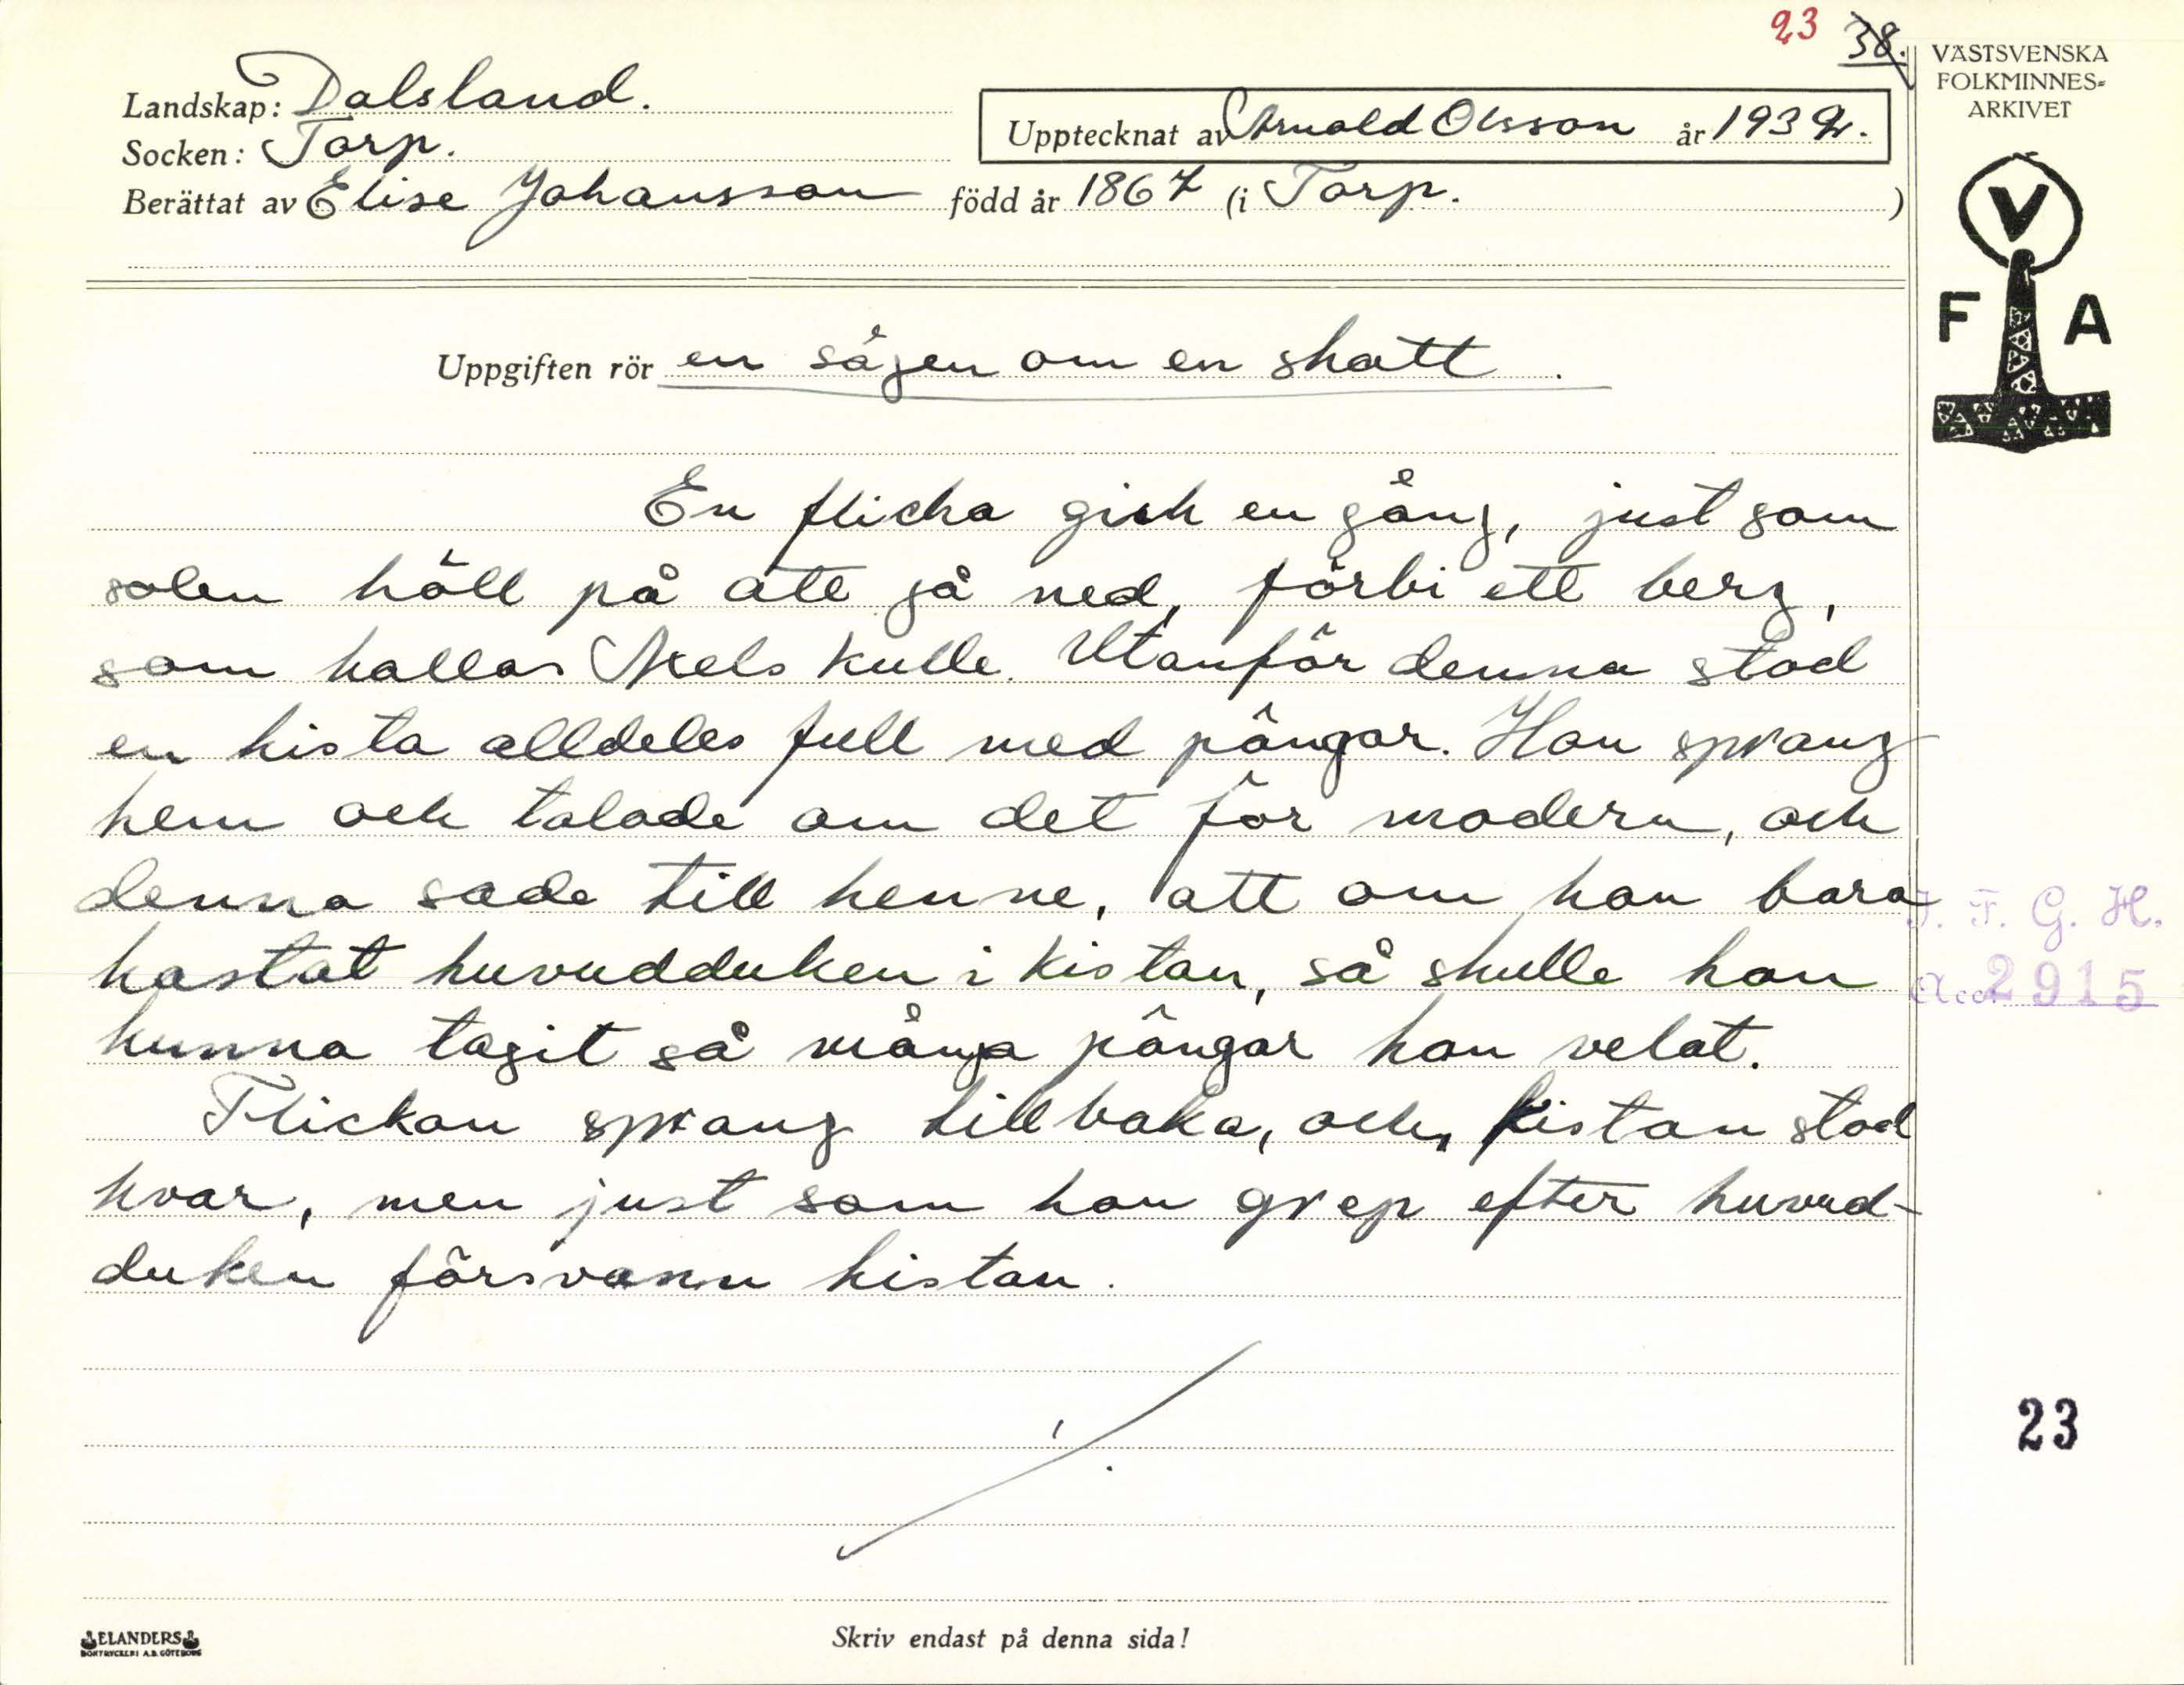 23 38.
VÄSTSVENSKA
FOLKMINNES-
ARKIVET
Landskap: Dalsland.
Upptecknat av Arnold Olsson år 1932.
Socken: Torp.
Berättat av Elise Johansson född år 1867 (i Torp. )
V
F A
Uppgiften rör en sägen om en skatt.
En flicka gick en gång, just som
solen höll på att gå ned, förbi ett berg,
som kallas Axels kulle. Utanför denna stod
en kista alldeles full med pängar. Hon sprang
hem och talade om det för modern, och
denna sade till henne, att om hon bara
kastat huvudduken i kistan, så skulle hon
kunna tagit så många pängar hon velat.
Flickan sprang tillbaka, och kistan stod
kvar, men just som hon grep efter huvud-
duken försvann kistan.
I. F. G. H.
Acc. 2915
23
ELANDERS
BOKTRYCKERI A.B. GÖTEBORG
Skriv endast på denna sida!